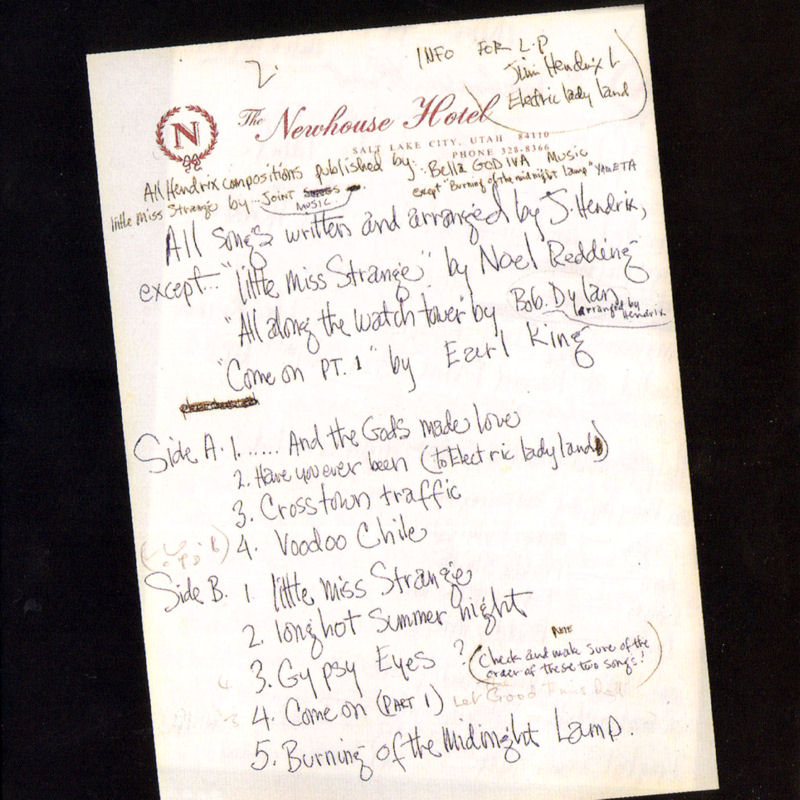 2.
INFO FOR L.P
Jimi Hendrix
Electric lady land
N
The Newhouse Hotel
SALT LAKE CITY, UTAH 84110
PHONE 328-8366
All Hendrix compositions published by... Bella GODIVA Music
exept "Burning of the midnight lamp" YAMETA
little miss Strange by... JOINT
MUSIC
All songs written and arranged by J. Hendrix,
except... "little miss Strange" by Noel Redding
"All along the watch tower" by Bob. Dylan
arranged by Hendrix
"Come on PT. 1" by Earl King
Side A. 1. ..... And the Gods made love
2. Have you ever been (to Electric lady land)
3. Crosstown traffic
4. Voodoo Chile
Side B. 1. little miss Strange
2. long hot Summer night
3. Gypsy Eyes ?
NOTE
(Check and make sure of the
order of these two songs!)
4. Come on (PART 1) Let Good Times Roll
5. Burning of the Midnight Lamp.